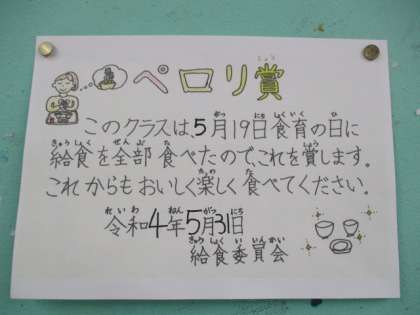 ペロリ賞
このクラスは、5月19日食育の日に
給食を全部食べたので、これを賞します。
これからもおいしく楽しく食べてください。
令和4年5月31日
給食委員会